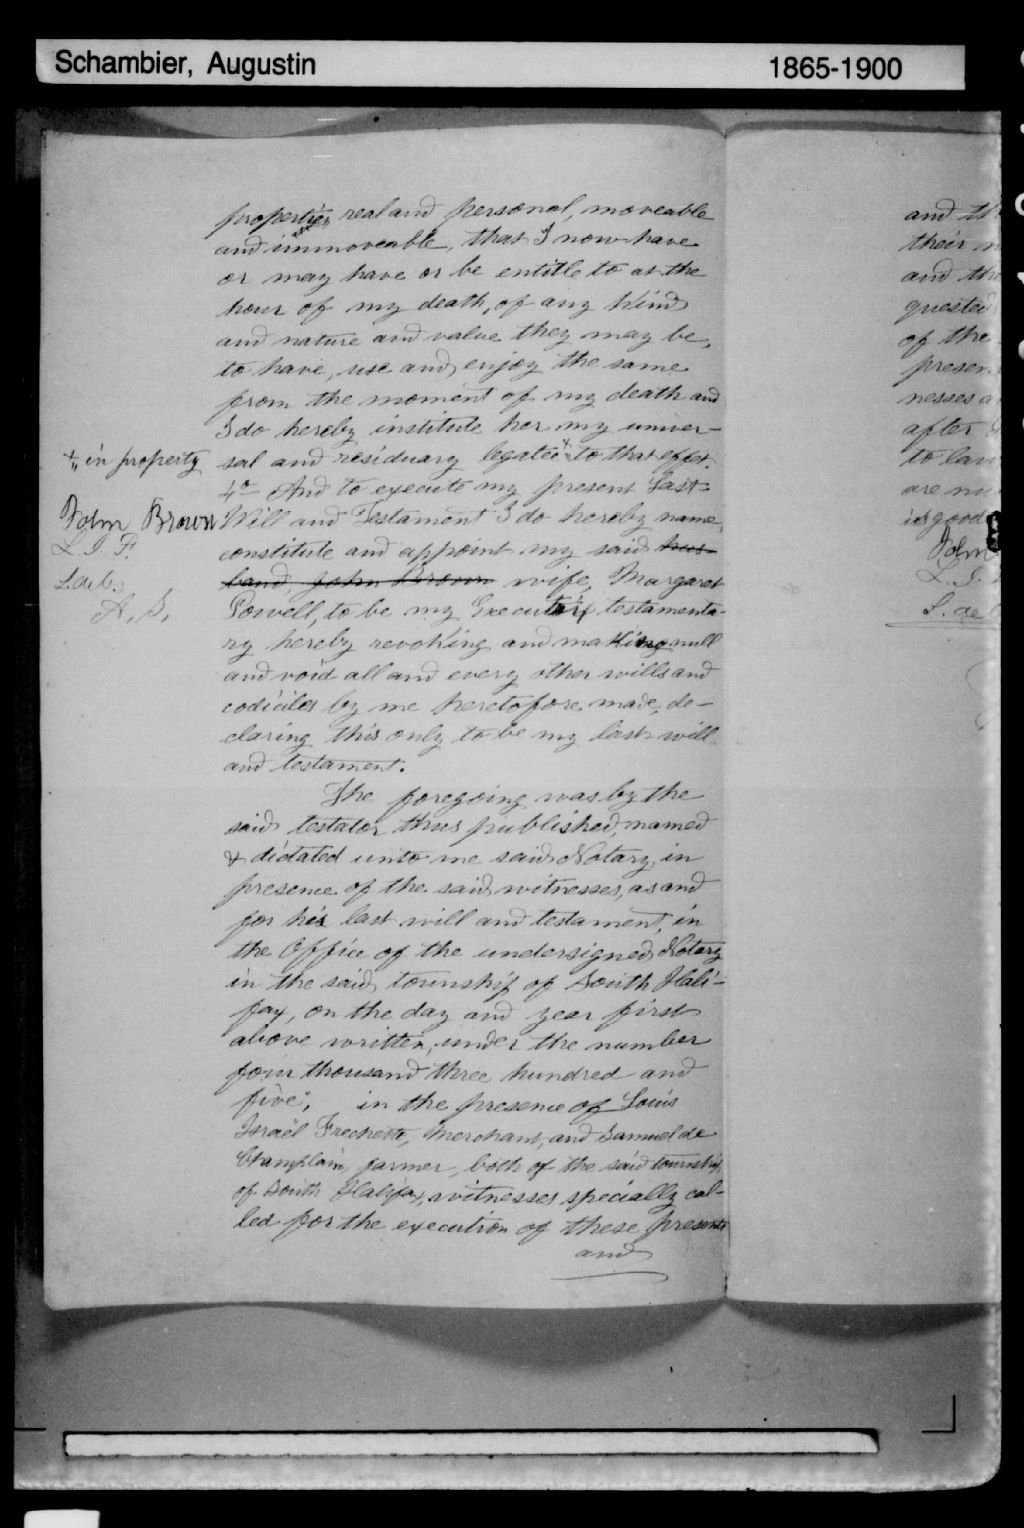 Schambier, Augustin 1865-1900
properties real and personal, moveable
and immoveable, that I now have
or may have or be entitle to at the
hour of my death, of any kind
and nature and value they may be,
to have, use and enjoy the same
from the moment of my death and
I do hereby institute her my univer-
+ in property
sal and residuary legatee + to that effet.
4o And to execute my present Last
John Brown
Will and Testament I do hereby name,
L. I. F.
constitute and appoint my said hus-
S. de C.
band, John Brown wife, Margaret
A. S.
Powell, to be my Executrix testamenta-
ry hereby revoking and making null
and void all and every other wills and
codiciles by me heretofore made, de-
claring this only to be my last will
and testament.
The foregoing was by the
said testator thus published, named
& dictated unto me said Notary, in
presence of the said witnesses, as and
for his last will and testament, in
the Office of the undersigned Notary
in the said township of South Hali-
fax, on the day and year first
above written, under the number
four thousand three hundred and
five; in the presence of Louis
Israël Frechette, Merchant, and Samuel de
Champlain, farmer, both of the said township
of South Halifax, witnesses specially cal-
led for the execution of these presents
and
and
their
and the
quested
of the
presen
nesses a
after
to
are
is good
John
L. I.
S. de